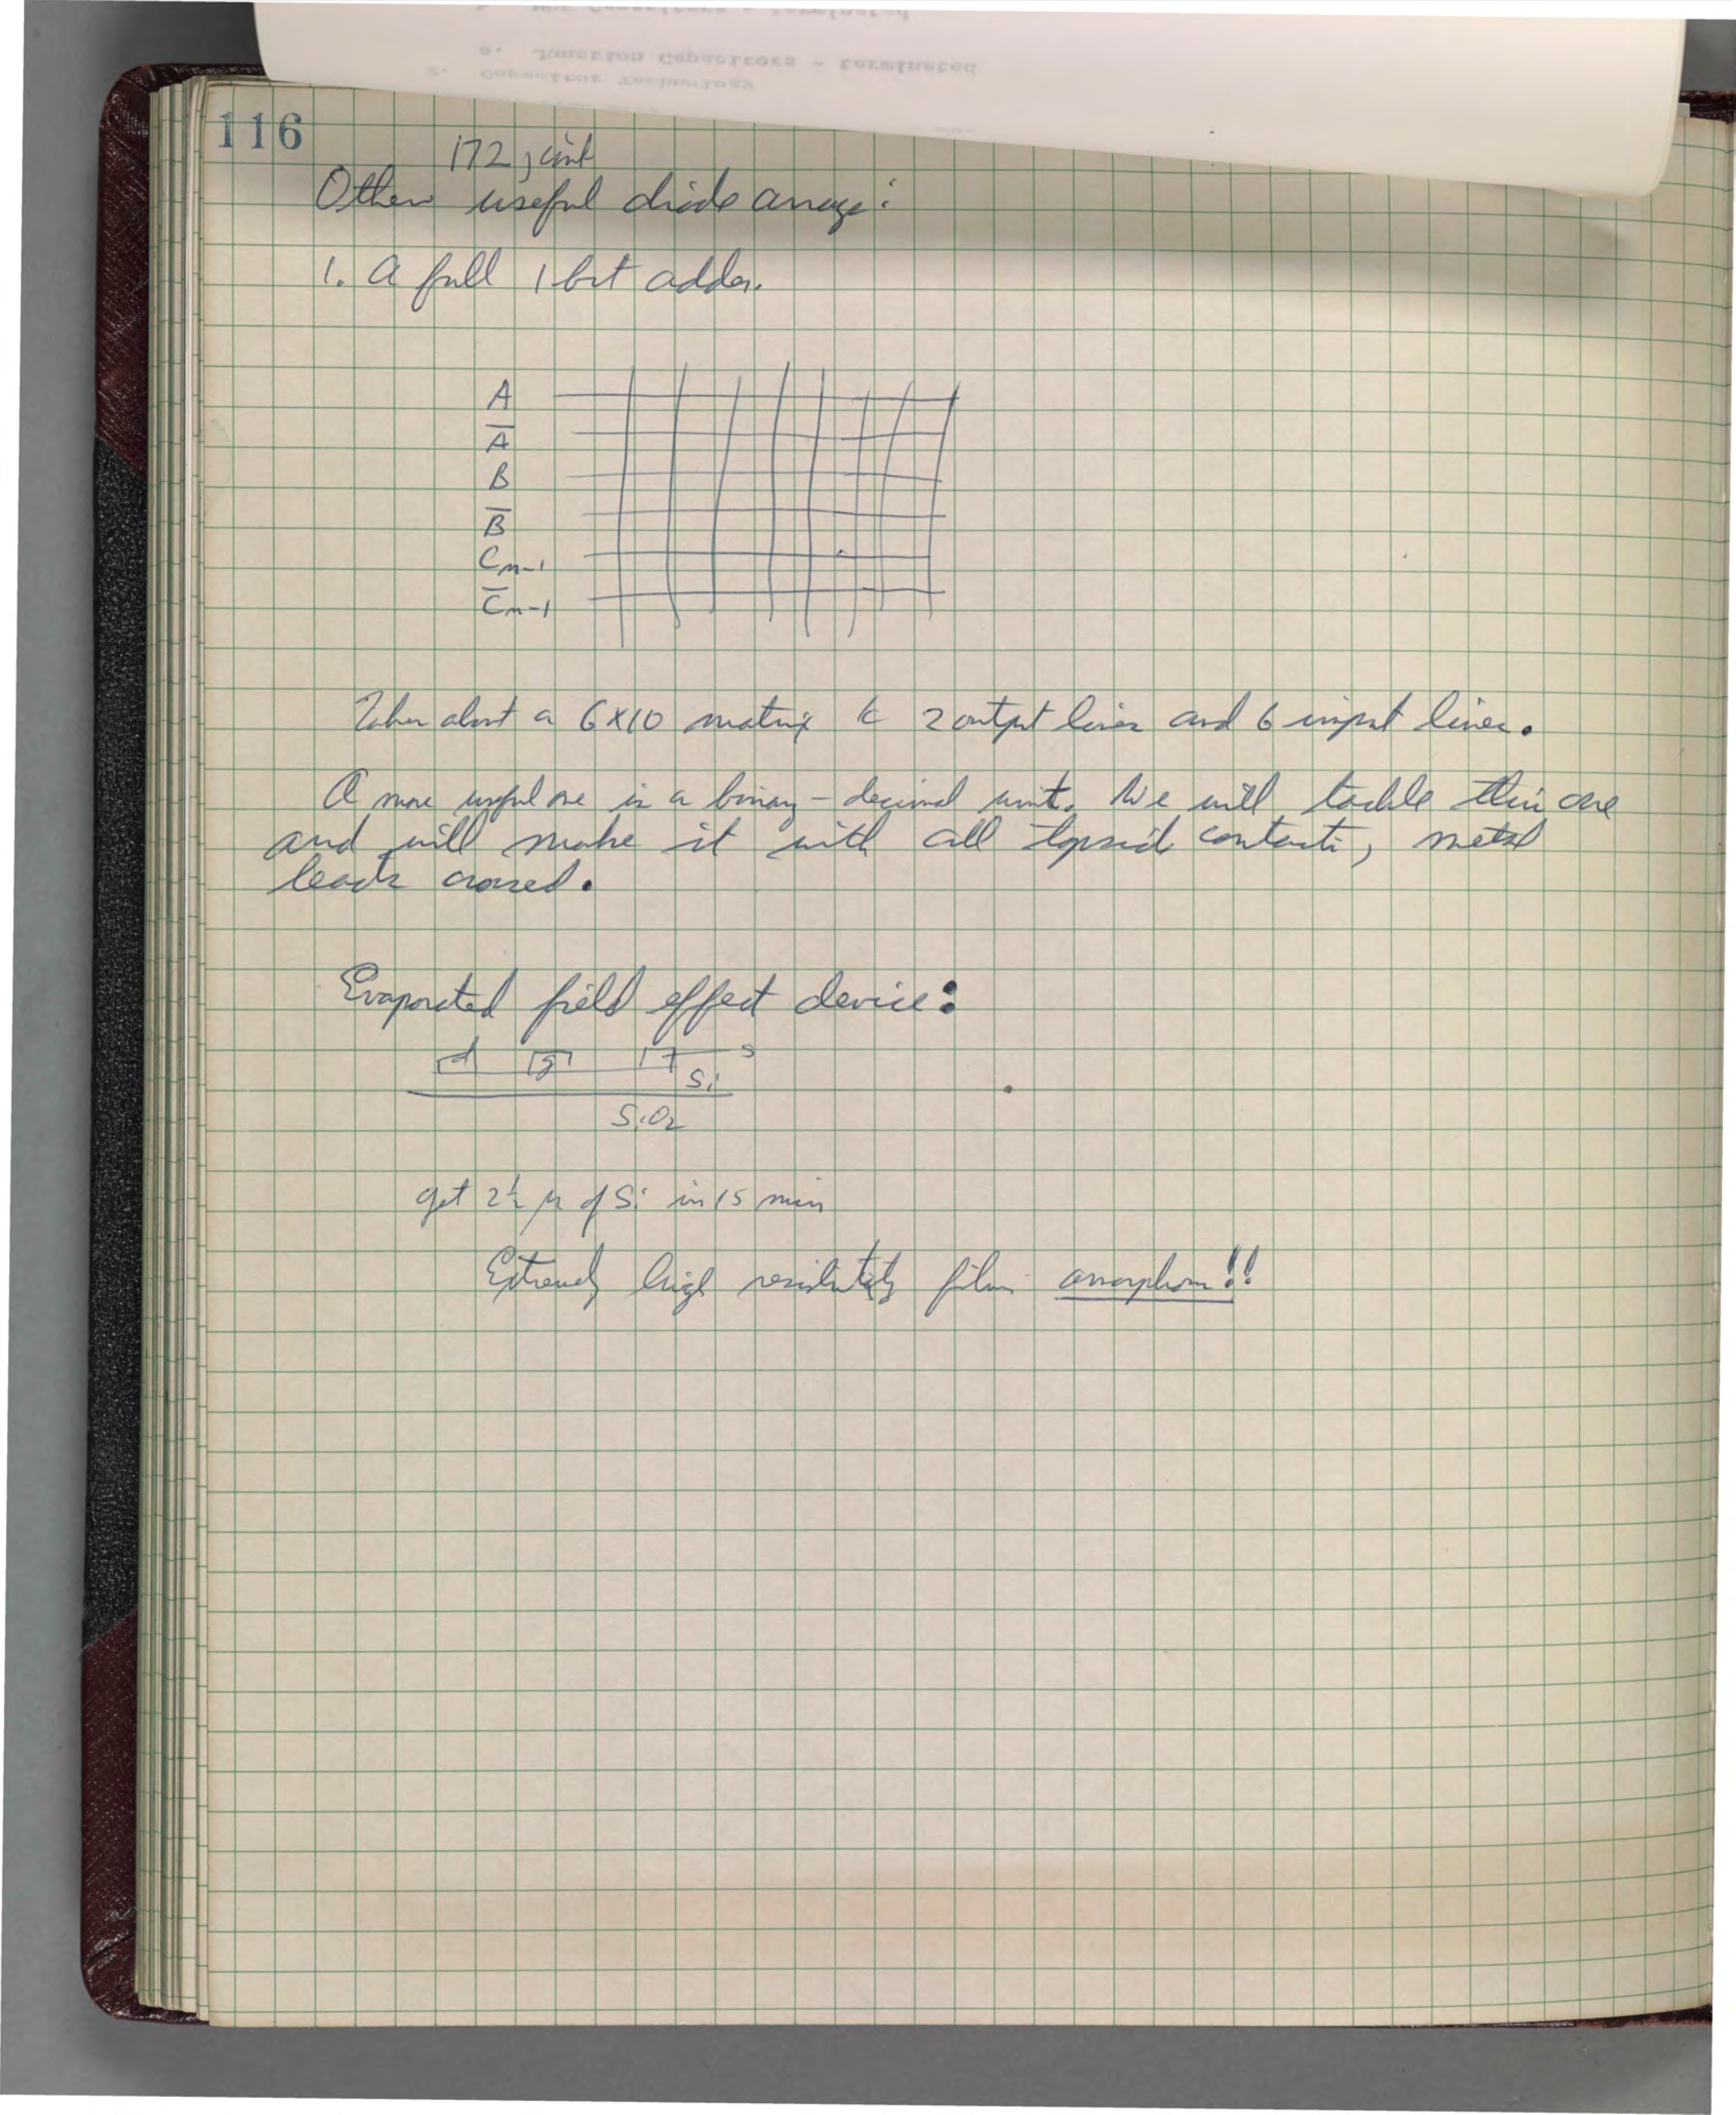 a. Junction Capacitors - terminated
Capacitor Technology
116
172, cont
Other useful diode arrays:
1. A full 1 bit adder.
A
A̅
B
B̅
Cn-1
C̅n-1
Takes about a 6x10 matrix 2 output lines and 6 input lines.
A more useful one is a binary - decimal unit. We will tackle this one
and will make it with all topside contacts, metal
leads crossed.
Evaporated field effect device:
d g s
Si
SiO2
get 2½ μ of Si in 15 min
Extremely high resistivity film amorphous!!